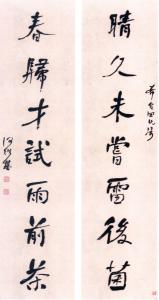 晴久未嘗雷後菌
春歸才試雨前茶
何紹基